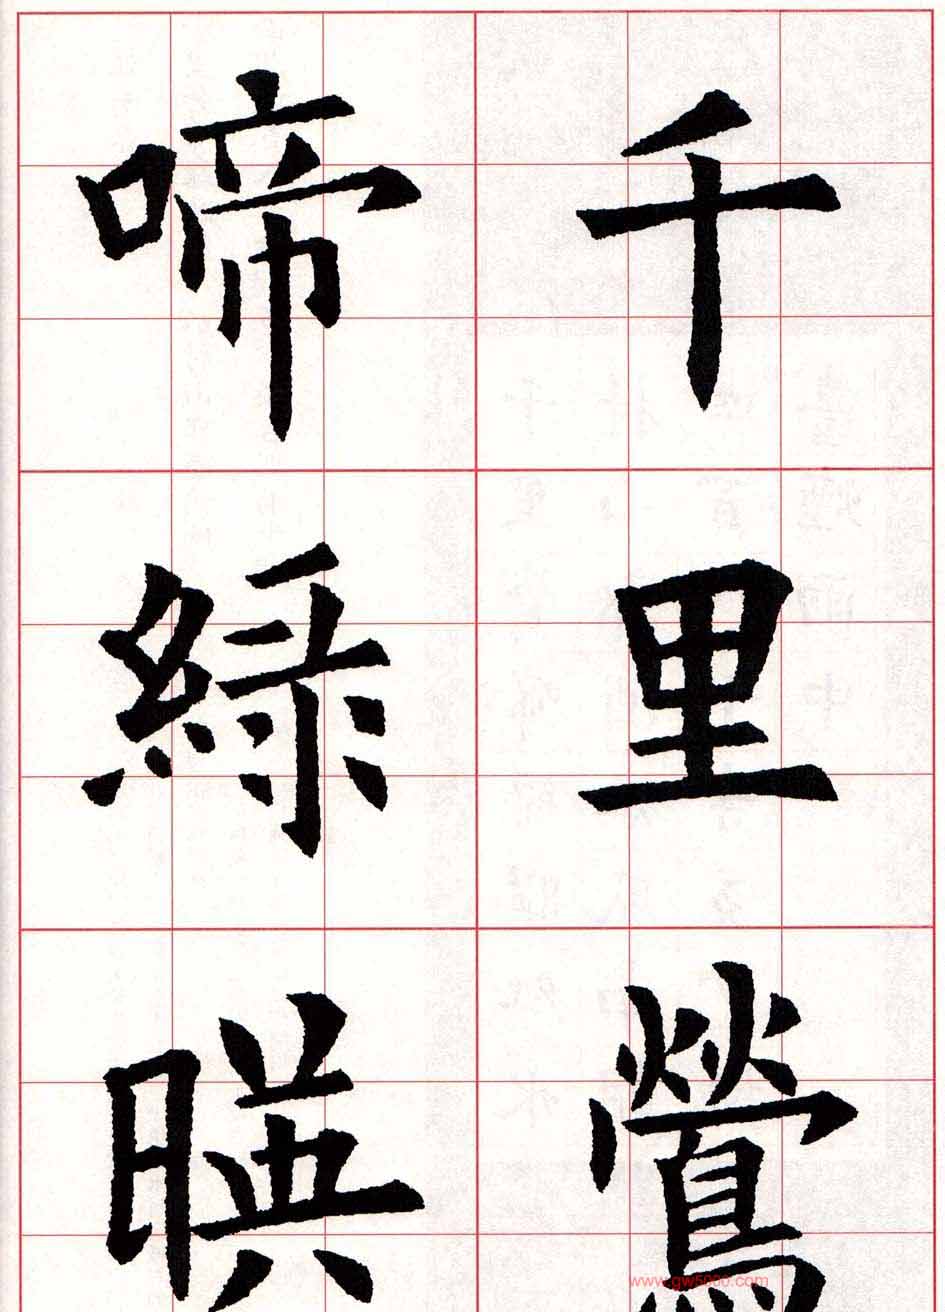 千里鶯
啼綠暎
www.gw5000.com